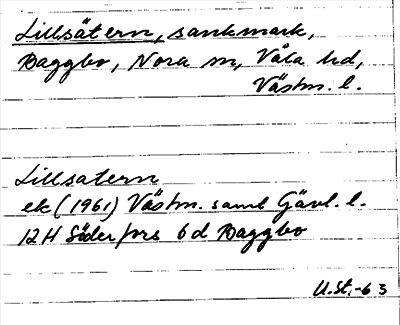 Lillsätern, sankmark,
Baggbo, Nora sn, Våla hd,
Västm. l.
Lillsatern
ek (1961) Västm. samt Gävl. l.
12H Söderfors 6d Baggbo
U.St.-63